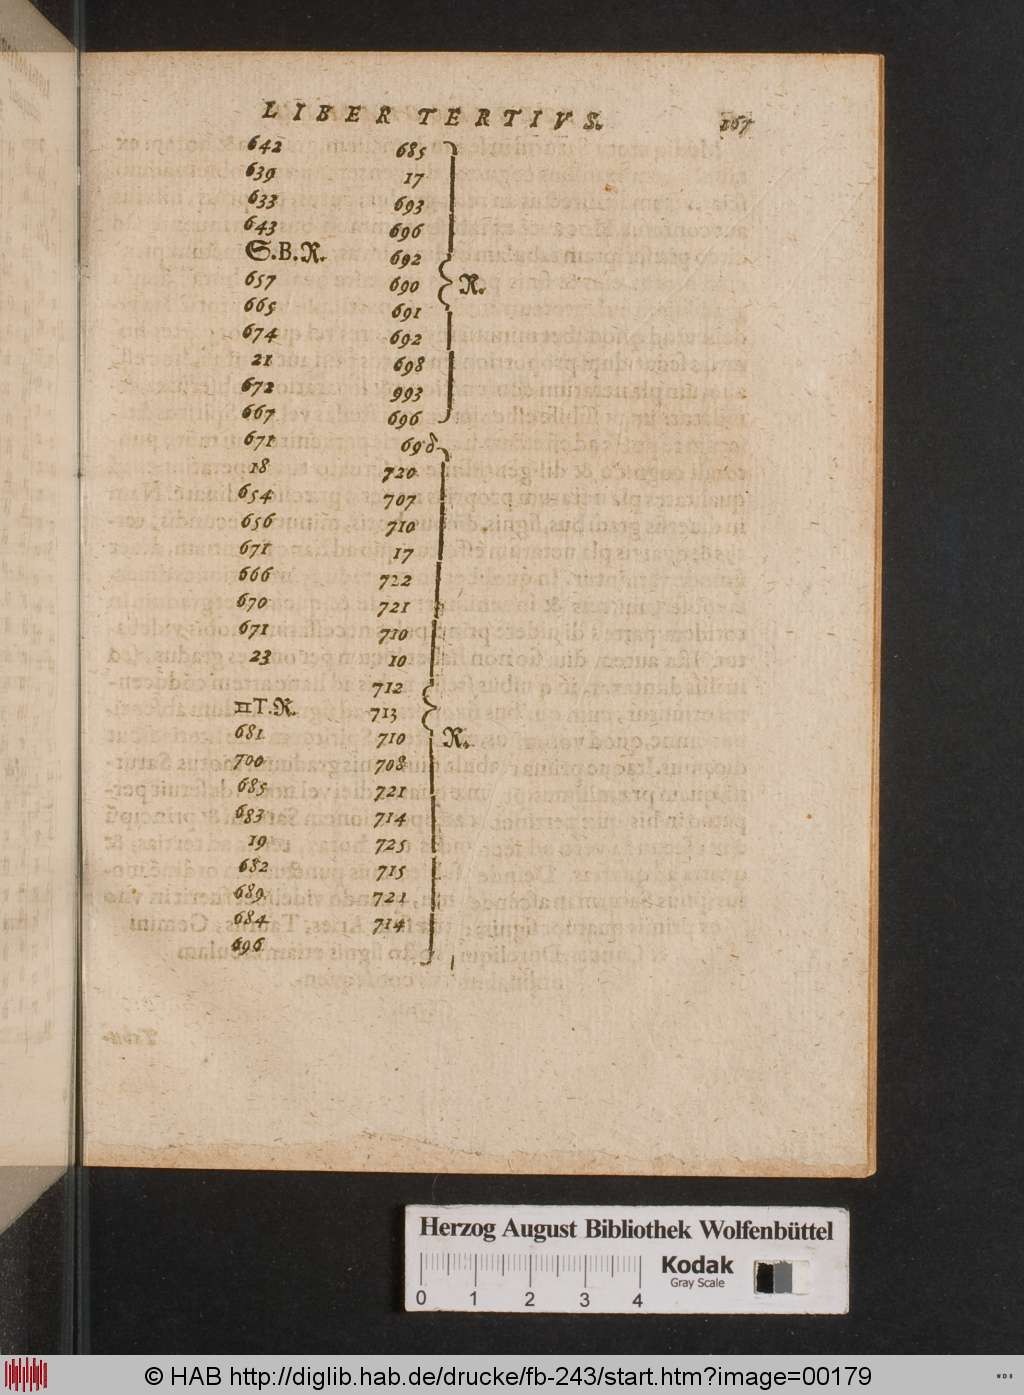 LIBER TERTIVS. 167
642 685
639 17
633 693
643 696
S.B.R. 692
657 690 R.
665 691
674 692
21 698
672 993
667 696
671 698
18 720
654 707
656 710
671 17
666 722
670 721
671 710
23 10
712
♊T.R. 713
681 710 R.
700 708
685 721
683 714
19 725
682 715
689 721
684 714
696
Herzog August Bibliothek Wolfenbüttel
Kodak
Gray Scale
0 1 2 3 4
© HAB http://diglib.hab.de/drucke/fb-243/start.htm?image=00179